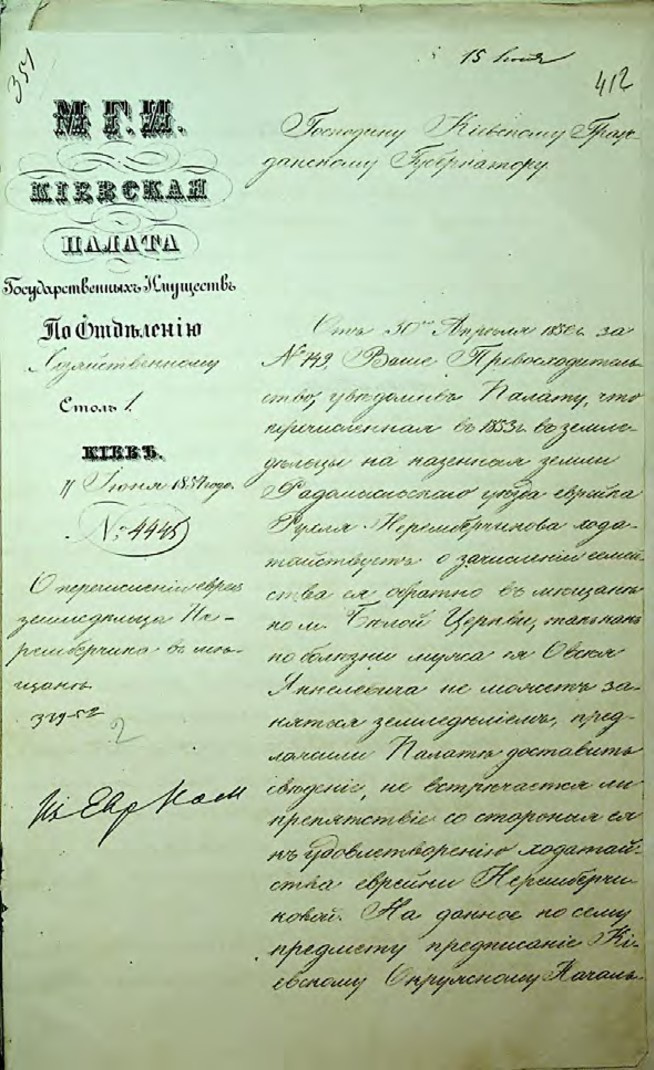 351
15 Июня
412
М. Г. И.
КІЕВСКАЯ
ПАЛАТА
Государственныхъ Имуществъ
По Отдѣленію
Хозяйственному
Столъ 1.
КІЕВЪ.
11 Іюня 1857 года.
№ 4445
О перечисленіи еврея
земледѣльца Не-
ремберчика въ мѣ-
щане.
379-52
2
Господину Кіевскому Граж-
данскому Губернатору.
Отъ 30го Апрѣля за
№ 749, Ваше Превосходитель-
ство, увѣдомивъ Палату, что
перечисленная въ 1853 г. въ земле-
дѣльцы на казенныя земли
Радомысльскаго уѣзда еврейка
Рухля Неремберчикова хода-
тайствуетъ о зачисленіи семей-
ства ея обратно въ мѣщане
по м. Бѣлой Церкви, такъ какъ
по болѣзни мужа ея Овсея
Янкелевича не можетъ за-
няться земледѣліемъ, пред-
ложили Палатѣ доставить
свѣденіе, не встрѣчается ли
препятствіе со стороны ея
къ удовлетворенію ходатай-
ства еврейки Неремберчи-
ковой. На данное по сему
предмету предписаніе Кі-
евскому Окружному Началь-